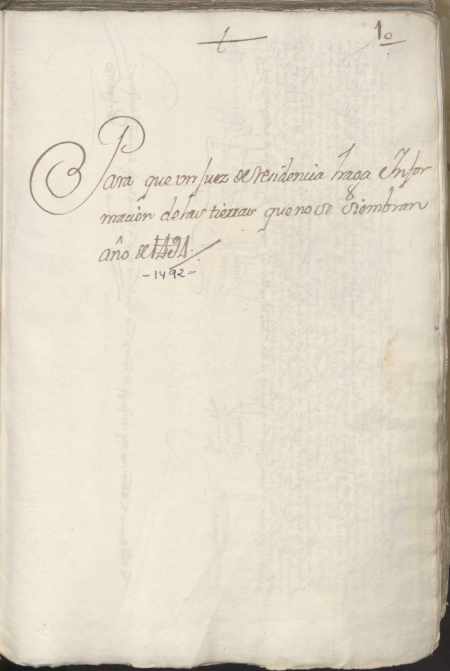 1o
Para que vn Juez de residencia haga Infor
macion de las tierras que no se Siembran
año de 1491.
- 1492 -